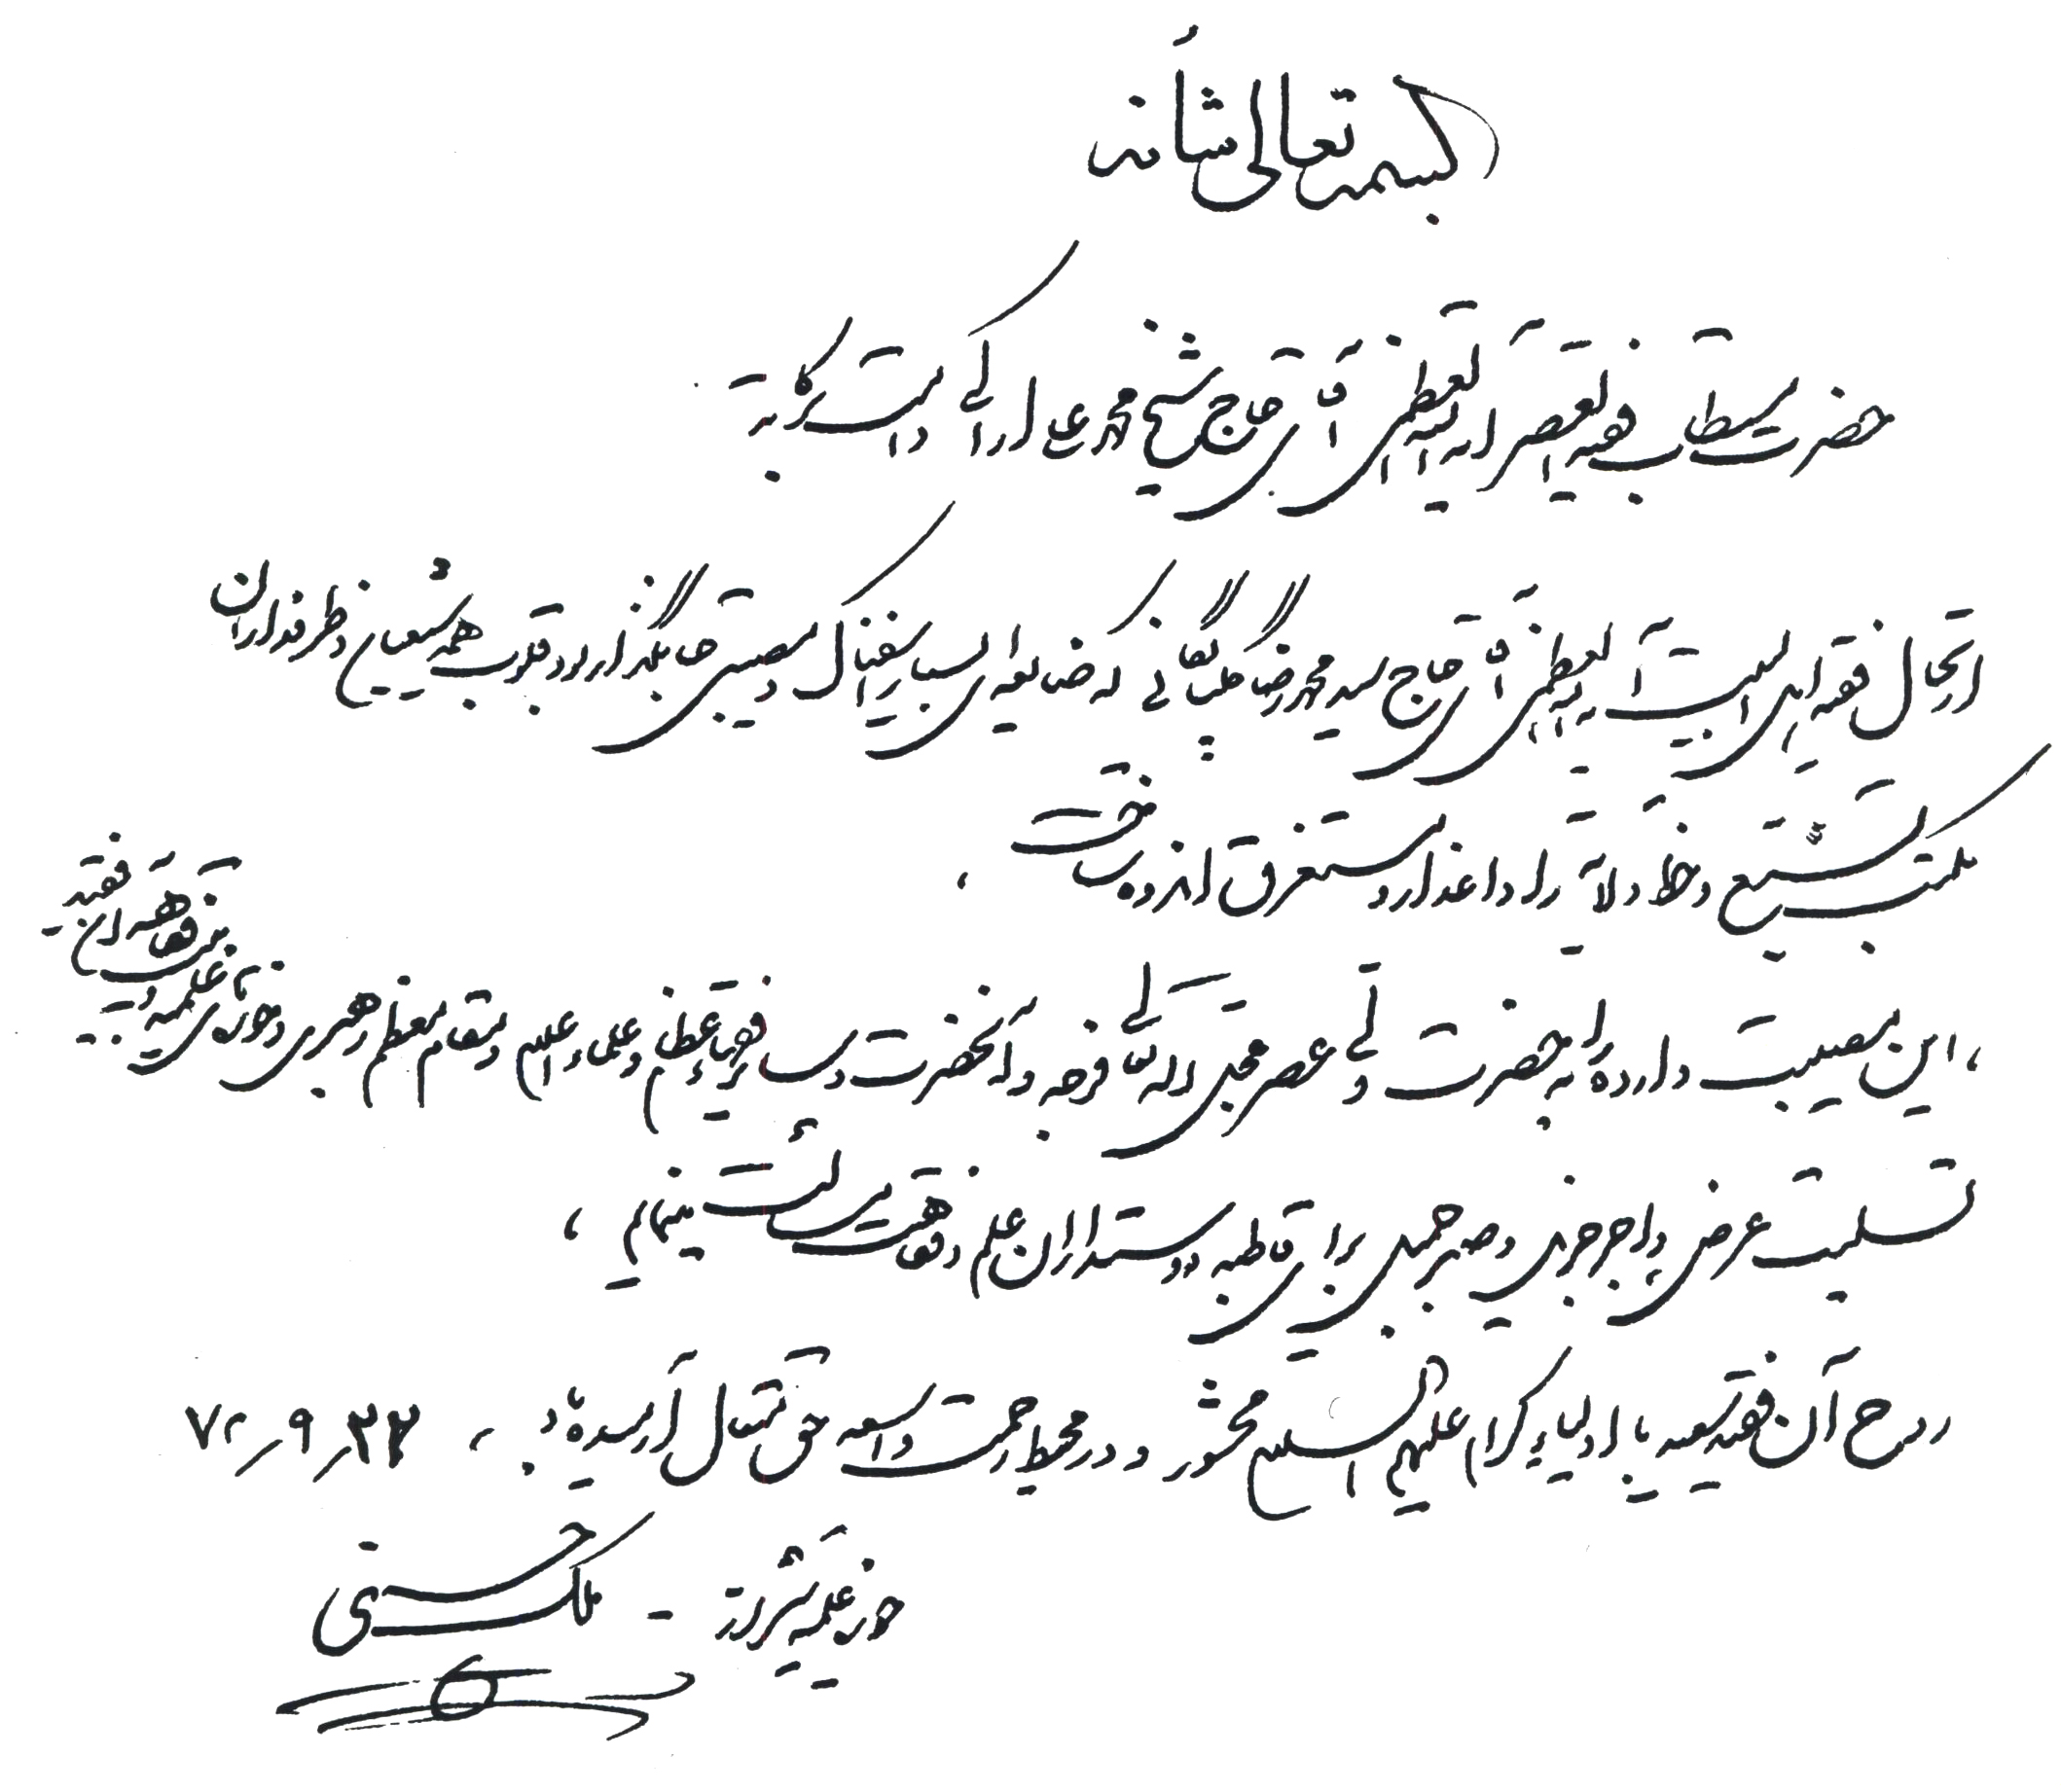 بسمه تعالی شأنه
حضرت مستطاب فقیه العصر آیة الله العظمی آقای حاج شیخ محمد علی اراکی دامت برکاته
ارتحال فقیه اهل البیت آیة الله العظمی آقای حاج سید محمد رضا گلپایگانی که ضایعه‌ای بسیار اسفناک و مصیبتی جانگداز بود قلوب همه شیعیان و طرفداران
مکتب تشیع و خط ولایت را داغدار و مستغرق اندوه ساخت،
، این مصیبت وارده را به حضرت ولی عصر عجل الله تعالی فرجه و آنحضرت و سایر فقهاء عظام و علماء اعلام و مقام معظم رهبری و حوزه‌های علمیه و بیت فقاهت آن فقید
تسلیت عرض و اجر جزیل و صبر جمیل برای قاطبه دوستداران علم و فقاهت مسئلت مینمایم،
روح آن فقید سعید با اولیاء کرام علیهم السلام محشور و در محیط رحمت واسعه حق متعال آرمیده باد. ، ۲۳ر۹ر۷۲
حوزه علمیه شیراز - ملک حسینی